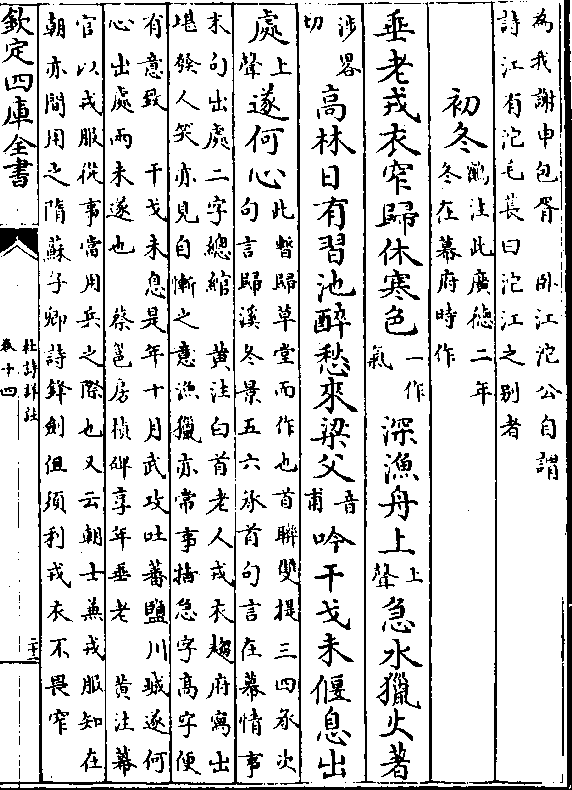 為我謝申包胥　卧江沱公自謂
詩江有沱毛萇曰沱江之别者
初冬鶴注此廣徳二年
冬在幕府時作
垂老戎衣窄歸休寒色一作氣深漁舟上上聲急水獵火著
涉畧切高林日有習池醉愁來梁父音甫吟干戈未偃息出
處上聲遂何心此暫歸草堂而作也首聯雙提三四承次
句言歸溪冬景五六承首句言在幕情事
末句出處二字總綰　黄注白首老人戎衣趨府寫出
堪發人笑亦見自慚之意漁獵亦常事摛急字髙字便
有意致　干戈未息是年十月武攻吐蕃鹽川城遂何
心出處兩未遂也　蔡邕房楨碑享年垂老　黄注幕
官以戎服從事當用兵之際也又云朝士兼戎服知在
朝亦間用之隋蘇子卿詩鋒劍但須利戎衣不畏窄
欽定四庫全書
杜詩詳註
卷十四
二十二